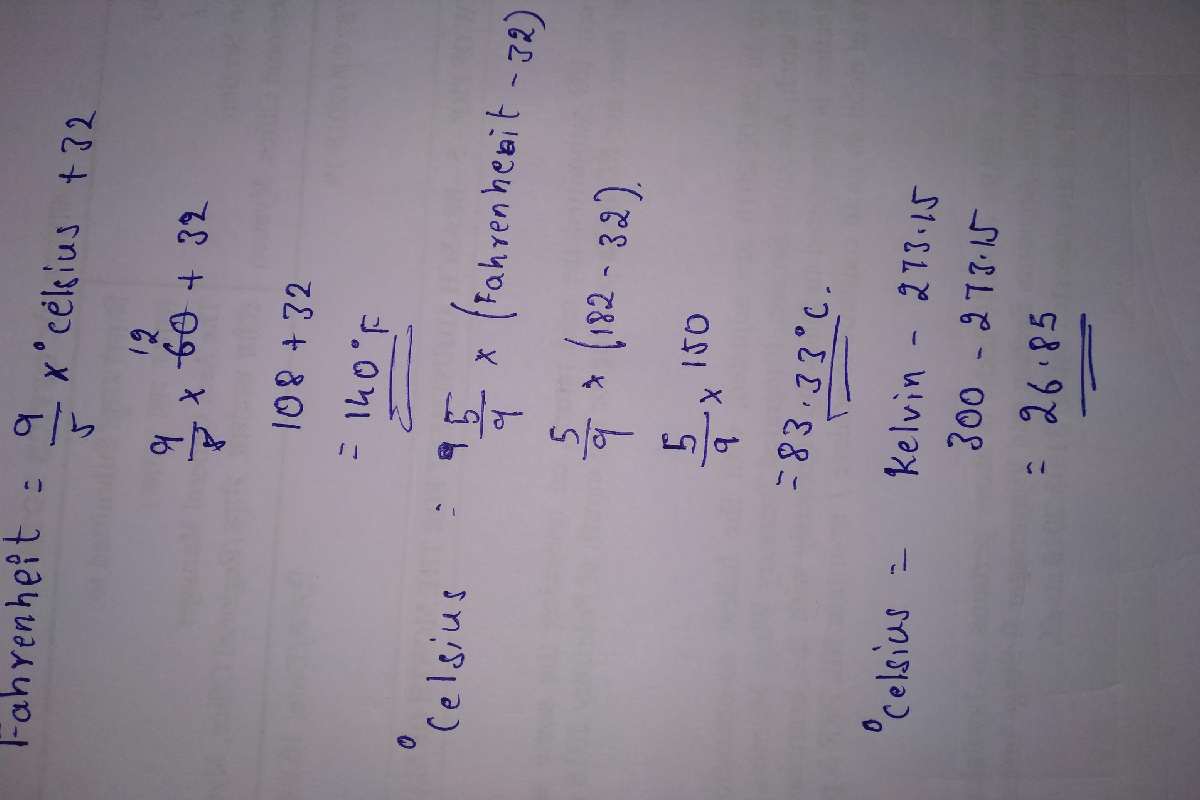 Fahrenheit = 9/5 x °celsius + 32
12
9/5 x 60 + 32
108 + 32
= 140°F
°Celsius = 5/9 x (Fahrenheit - 32)
5/9 x (182 - 32).
5/9 x 150
= 83.33°C.
°Celsius = Kelvin - 273.15
300 - 273.15
= 26.85